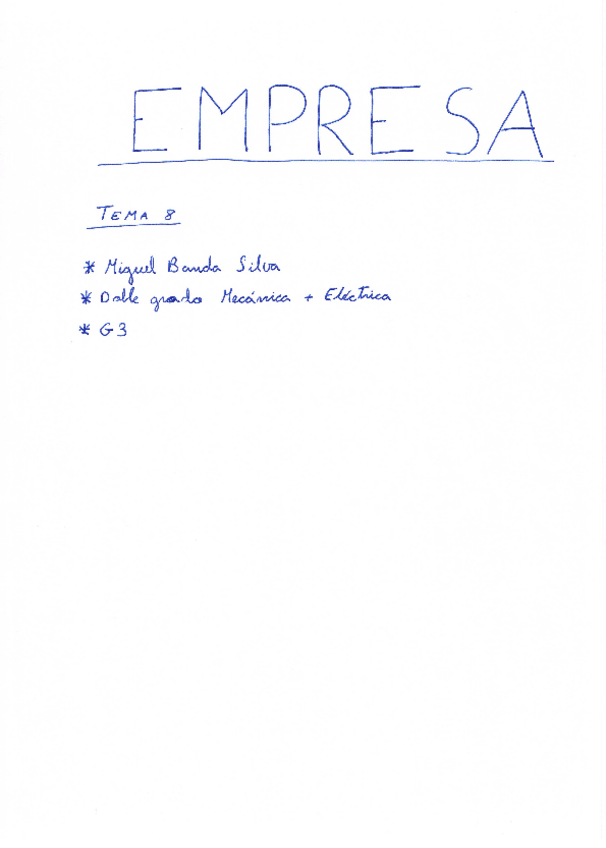 EMPRESA
TEMA 8
* Miguel Banda Silva
* Doble grado Mecánica + Eléctrica
* G3